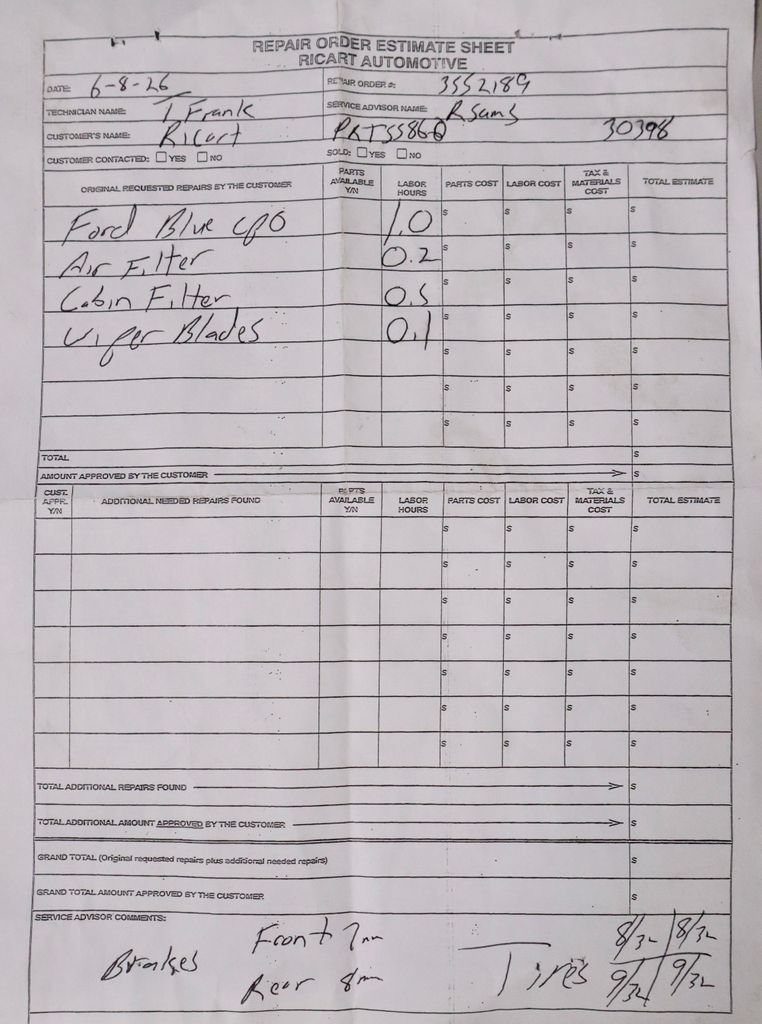 REPAIR ORDER ESTIMATE SHEET
RICART AUTOMOTIVE
DATE: 6-8-26 REPAIR ORDER #: 3552189
TECHNICIAN NAME: T Frank SERVICE ADVISOR NAME: R Sams
CUSTOMER'S NAME: Ricart PRT55860 30398
CUSTOMER CONTACTED: ☐ YES ☐ NO SOLD: ☐ YES ☐ NO
ORIGINAL REQUESTED REPAIRS BY THE CUSTOMER PARTS AVAILABLE Y/N LABOR HOURS PARTS COST LABOR COST TAX & MATERIALS COST TOTAL ESTIMATE
Ford Blue CPO 1.0 $ $ $ $
Air Filter 0.2 $ $ $ $
Cabin Filter 0.5 $ $ $ $
Wiper Blades 0.1 $ $ $ $
$ $ $ $
$ $ $ $
$ $ $ $
TOTAL $
AMOUNT APPROVED BY THE CUSTOMER $
CUST. APPR. Y/N ADDITIONAL NEEDED REPAIRS FOUND PARTS AVAILABLE Y/N LABOR HOURS PARTS COST LABOR COST TAX & MATERIALS COST TOTAL ESTIMATE
$ $ $ $
$ $ $ $
$ $ $ $
$ $ $ $
$ $ $ $
$ $ $ $
$ $ $ $
TOTAL ADDITIONAL REPAIRS FOUND $
TOTAL ADDITIONAL AMOUNT APPROVED BY THE CUSTOMER $
GRAND TOTAL (Original requested repairs plus additional needed repairs) $
GRAND TOTAL AMOUNT APPROVED BY THE CUSTOMER $
SERVICE ADVISOR COMMENTS:
Brakes Front 7mm Tires 8/32 8/32
Rear 8mm 9/32 9/32